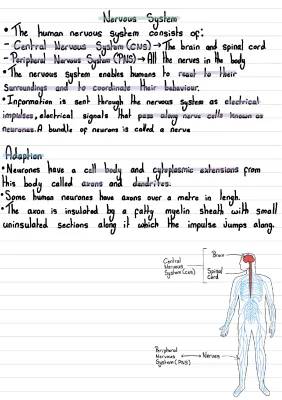 Nervous System
• The human nervous system consists of:
- Central Nervous System (CNS) → The brain and spinal cord
- Peripheral Nervous System (PNS) → All the nerves in the body
• The nervous system enables humans to react to their
Surroundings and to coordinate their behaviour.
• Information is sent through the nervous system as electrical
impulses, electrical signals that pass along nerve cells known as
neurones. A bundle of neurons is called a nerve
Adaption
• Neurones have a cell body and cytoplasmic extensions from
this body called axons and dendrites.
• Some human neurones have axons over a metre in length.
• The axon is insulated by a fatty myelin sheath with small
uninsulated sections along it which the impulse jumps along.
Central
Nervous
System (CNS)
Brain
Spinal
cord
Peripheral
Nervous
System (PNS)
→ Nerves